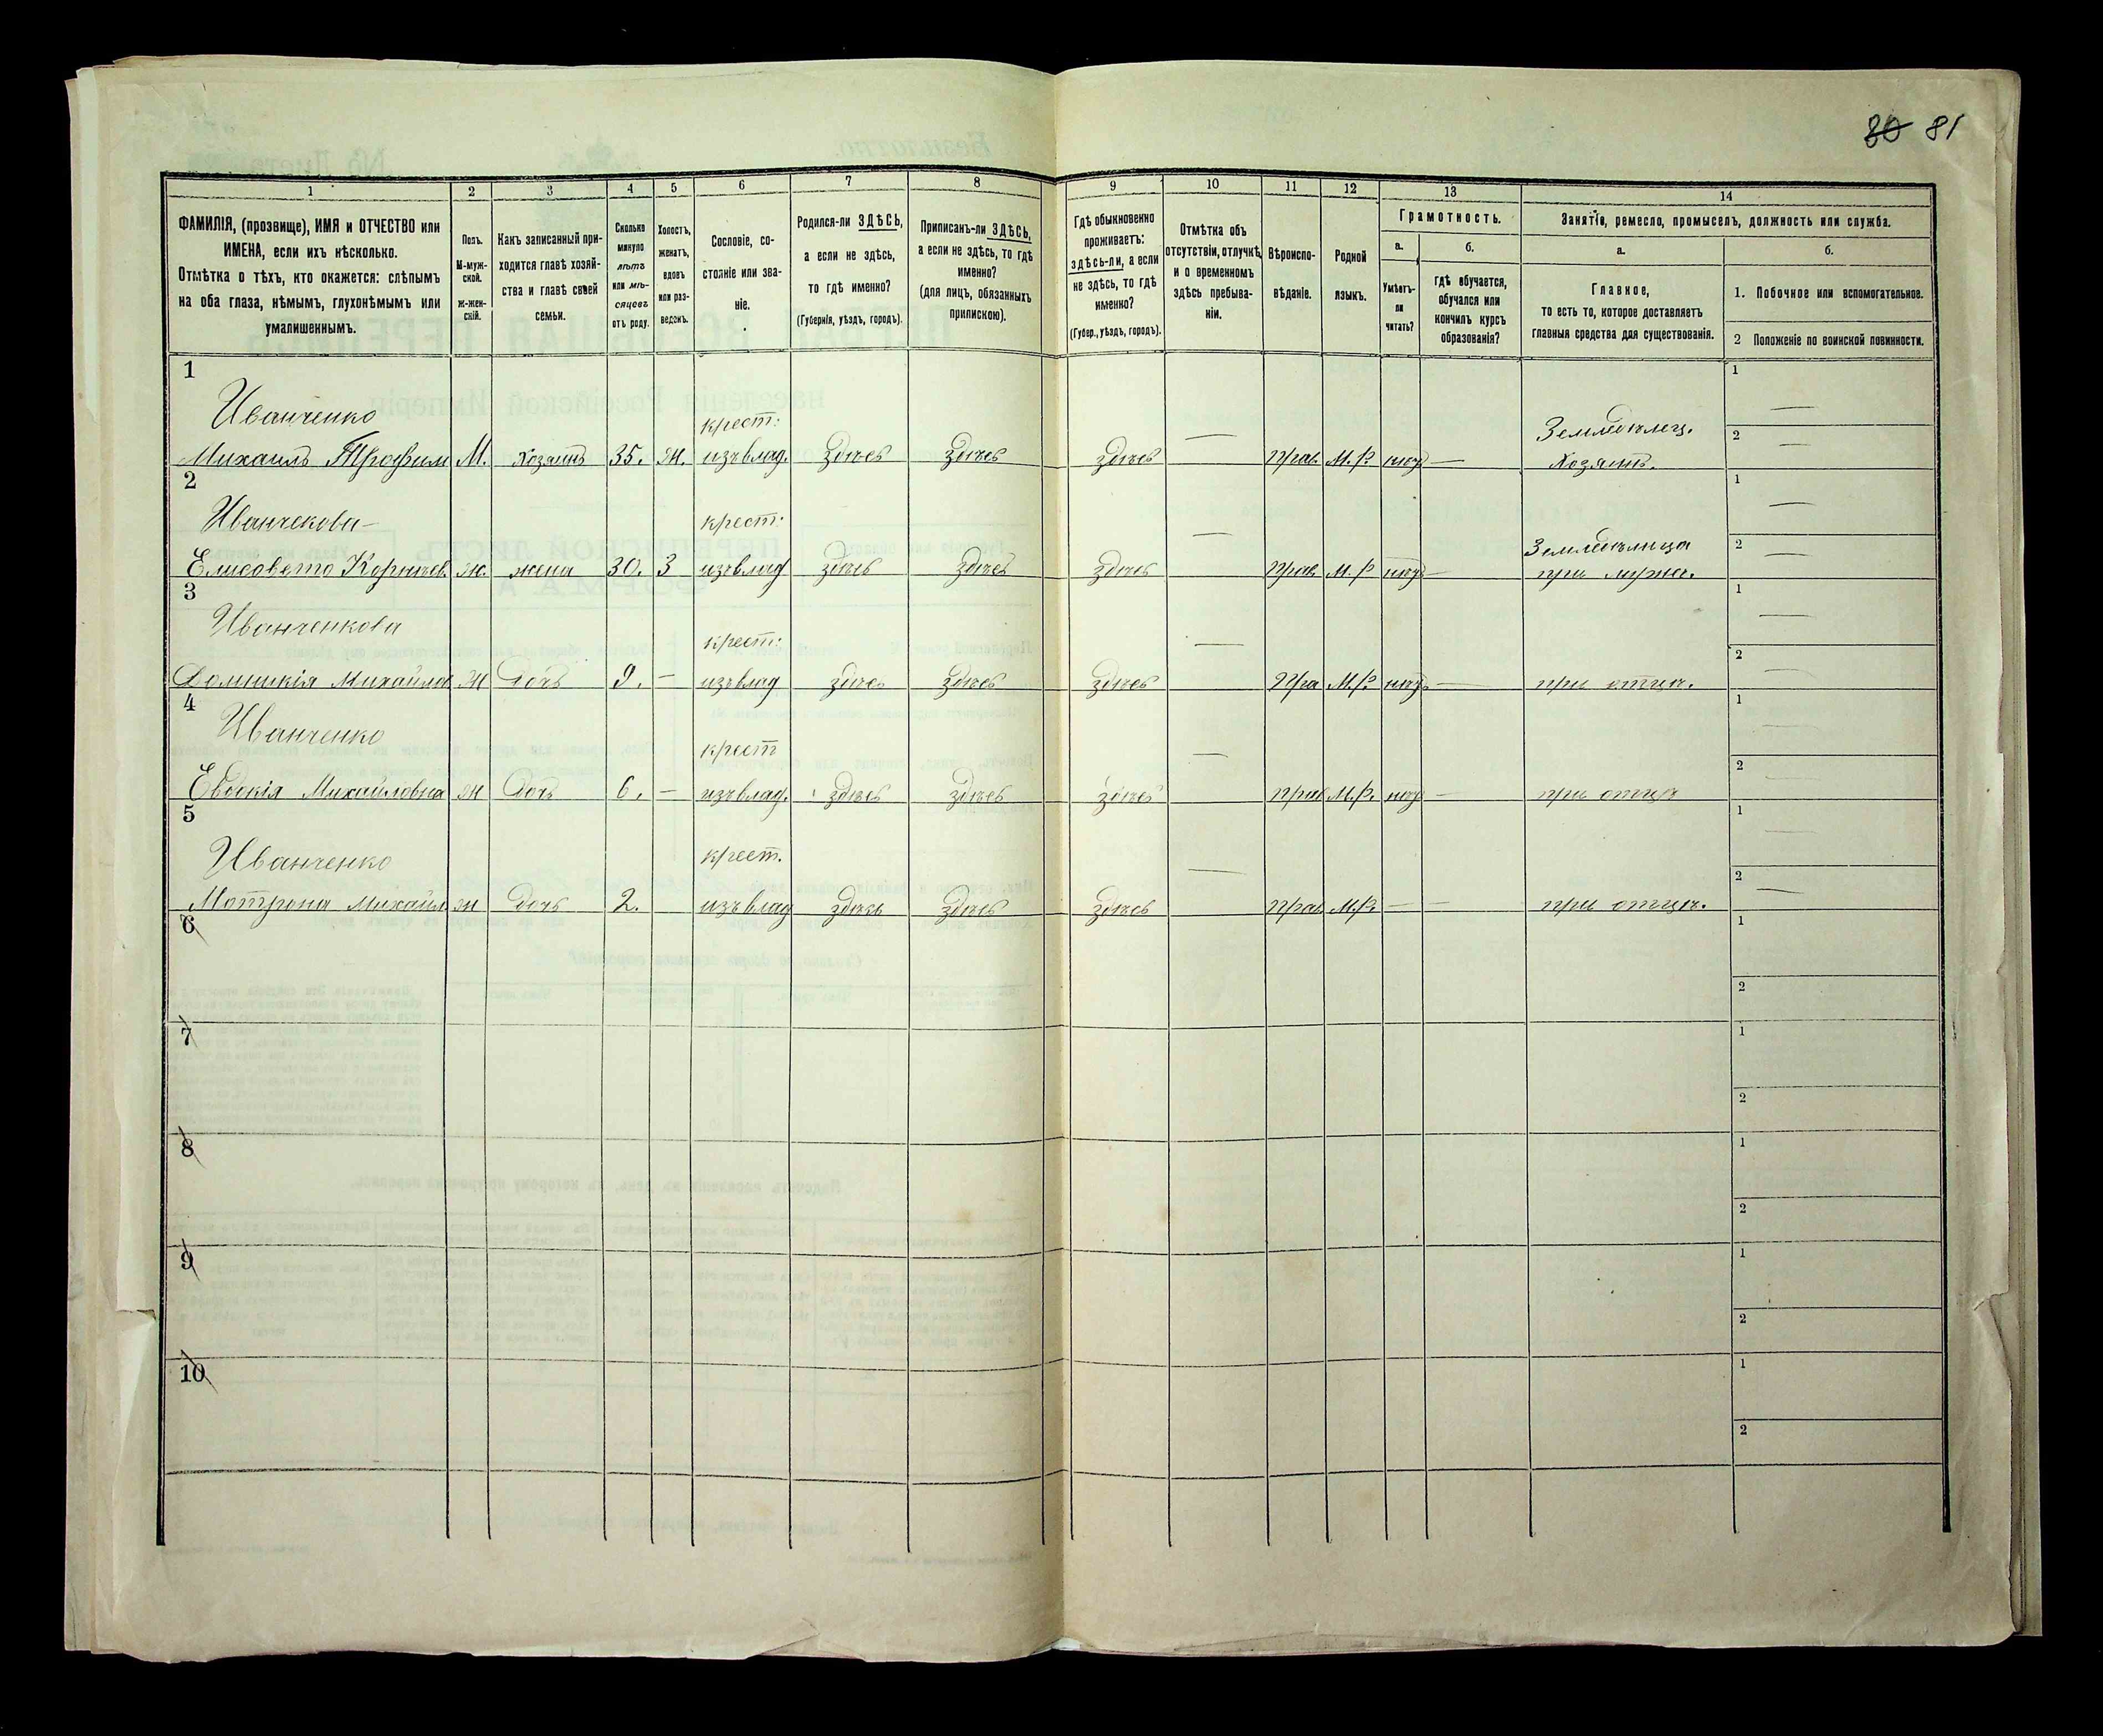 80 81
1 2 3 4 5 6 7 8 9 10 11 12 13 14
ФАМИЛІЯ, (прозвище), ИМЯ и ОТЧЕСТВО или
ИМЕНА, если ихъ нѣсколько.
Отмѣтка о тѣхъ, кто окажется: слѣпымъ
на оба глаза, нѣмымъ, глухонѣмымъ или
умалишеннымъ.
Полъ.
М-муж-
ской.
Ж-жен-
скій.
Какъ записанный при-
ходится главѣ хозяй-
ства и главѣ своей
семьи.
Сколько
минуло
лѣтъ
или мѣ-
сяцевъ
отъ роду.
Холостъ,
женатъ,
вдовъ
или раз-
веденъ.
Сословіе, со-
стояніе или зва-
ніе.
Родился-ли ЗДѢСЬ,
а если не здѣсь,
то гдѣ именно?
(Губернія, уѣздъ, городъ).
Приписанъ-ли ЗДѢСЬ,
а если не здѣсь, то гдѣ
именно?
(для лицъ, обязанныхъ
припискою).
Гдѣ обыкновенно
проживаетъ:
здѣсь-ли, а если
не здѣсь, то гдѣ
именно?
(Губер., уѣздъ, городъ).
Отмѣтка объ
отсутствіи, отлучкѣ
и о временномъ
здѣсь пребыва-
ніи.
Вѣроиспо-
вѣданіе.
Родной
языкъ.
Грамотность.
а.
Умѣетъ-
ли
читать?
б.
гдѣ обучается,
обучался или
кончилъ курсъ
образованія?
Занятіе, ремесло, промыселъ, должность или служба.
а.
Главное,
то есть то, которое доставляетъ
главныя средства для существованія.
б.
1. Побочное или вспомогательное.
2 Положеніе по воинской повинности.
1
Иванченко крест: Земледѣлец. 1 —
Михаилъ Трофим М. хозяинъ 35. Ж. изъ влад. здѣсь здѣсь здѣсь — прав. М.Р. нѣт — Хозяинъ. 2 —
2
Иванчекова крест: Земледѣлица 1 —
Елисовета Корнѣев. ж. жена 30. З изъ влад здѣсь здѣсь здѣсь — прав. М.Р нѣт — при мужѣ. 2 —
3
Иванченкова крест: 1 —
Домникія Михайлов Ж Дочь 9. — изъ влад здѣсь здѣсь здѣсь — Пра М.Р. нѣт — при отцѣ. 2 —
4
Иванченко крест 1 —
Евдокія Михайловна Ж Дочь 6. — изъ влад. здѣсь здѣсь здѣсь — прав М.Р. нѣт — при отцѣ 2 —
5
Иванченко крест. 1 —
Мотрона Михайл. Ж дочь 2. изъ влад здѣсь здѣсь здѣсь — прав. М.Р. — — при отцѣ. 2 —
6 1
2
7 1
2
8 1
2
9 1
2
10 1
2